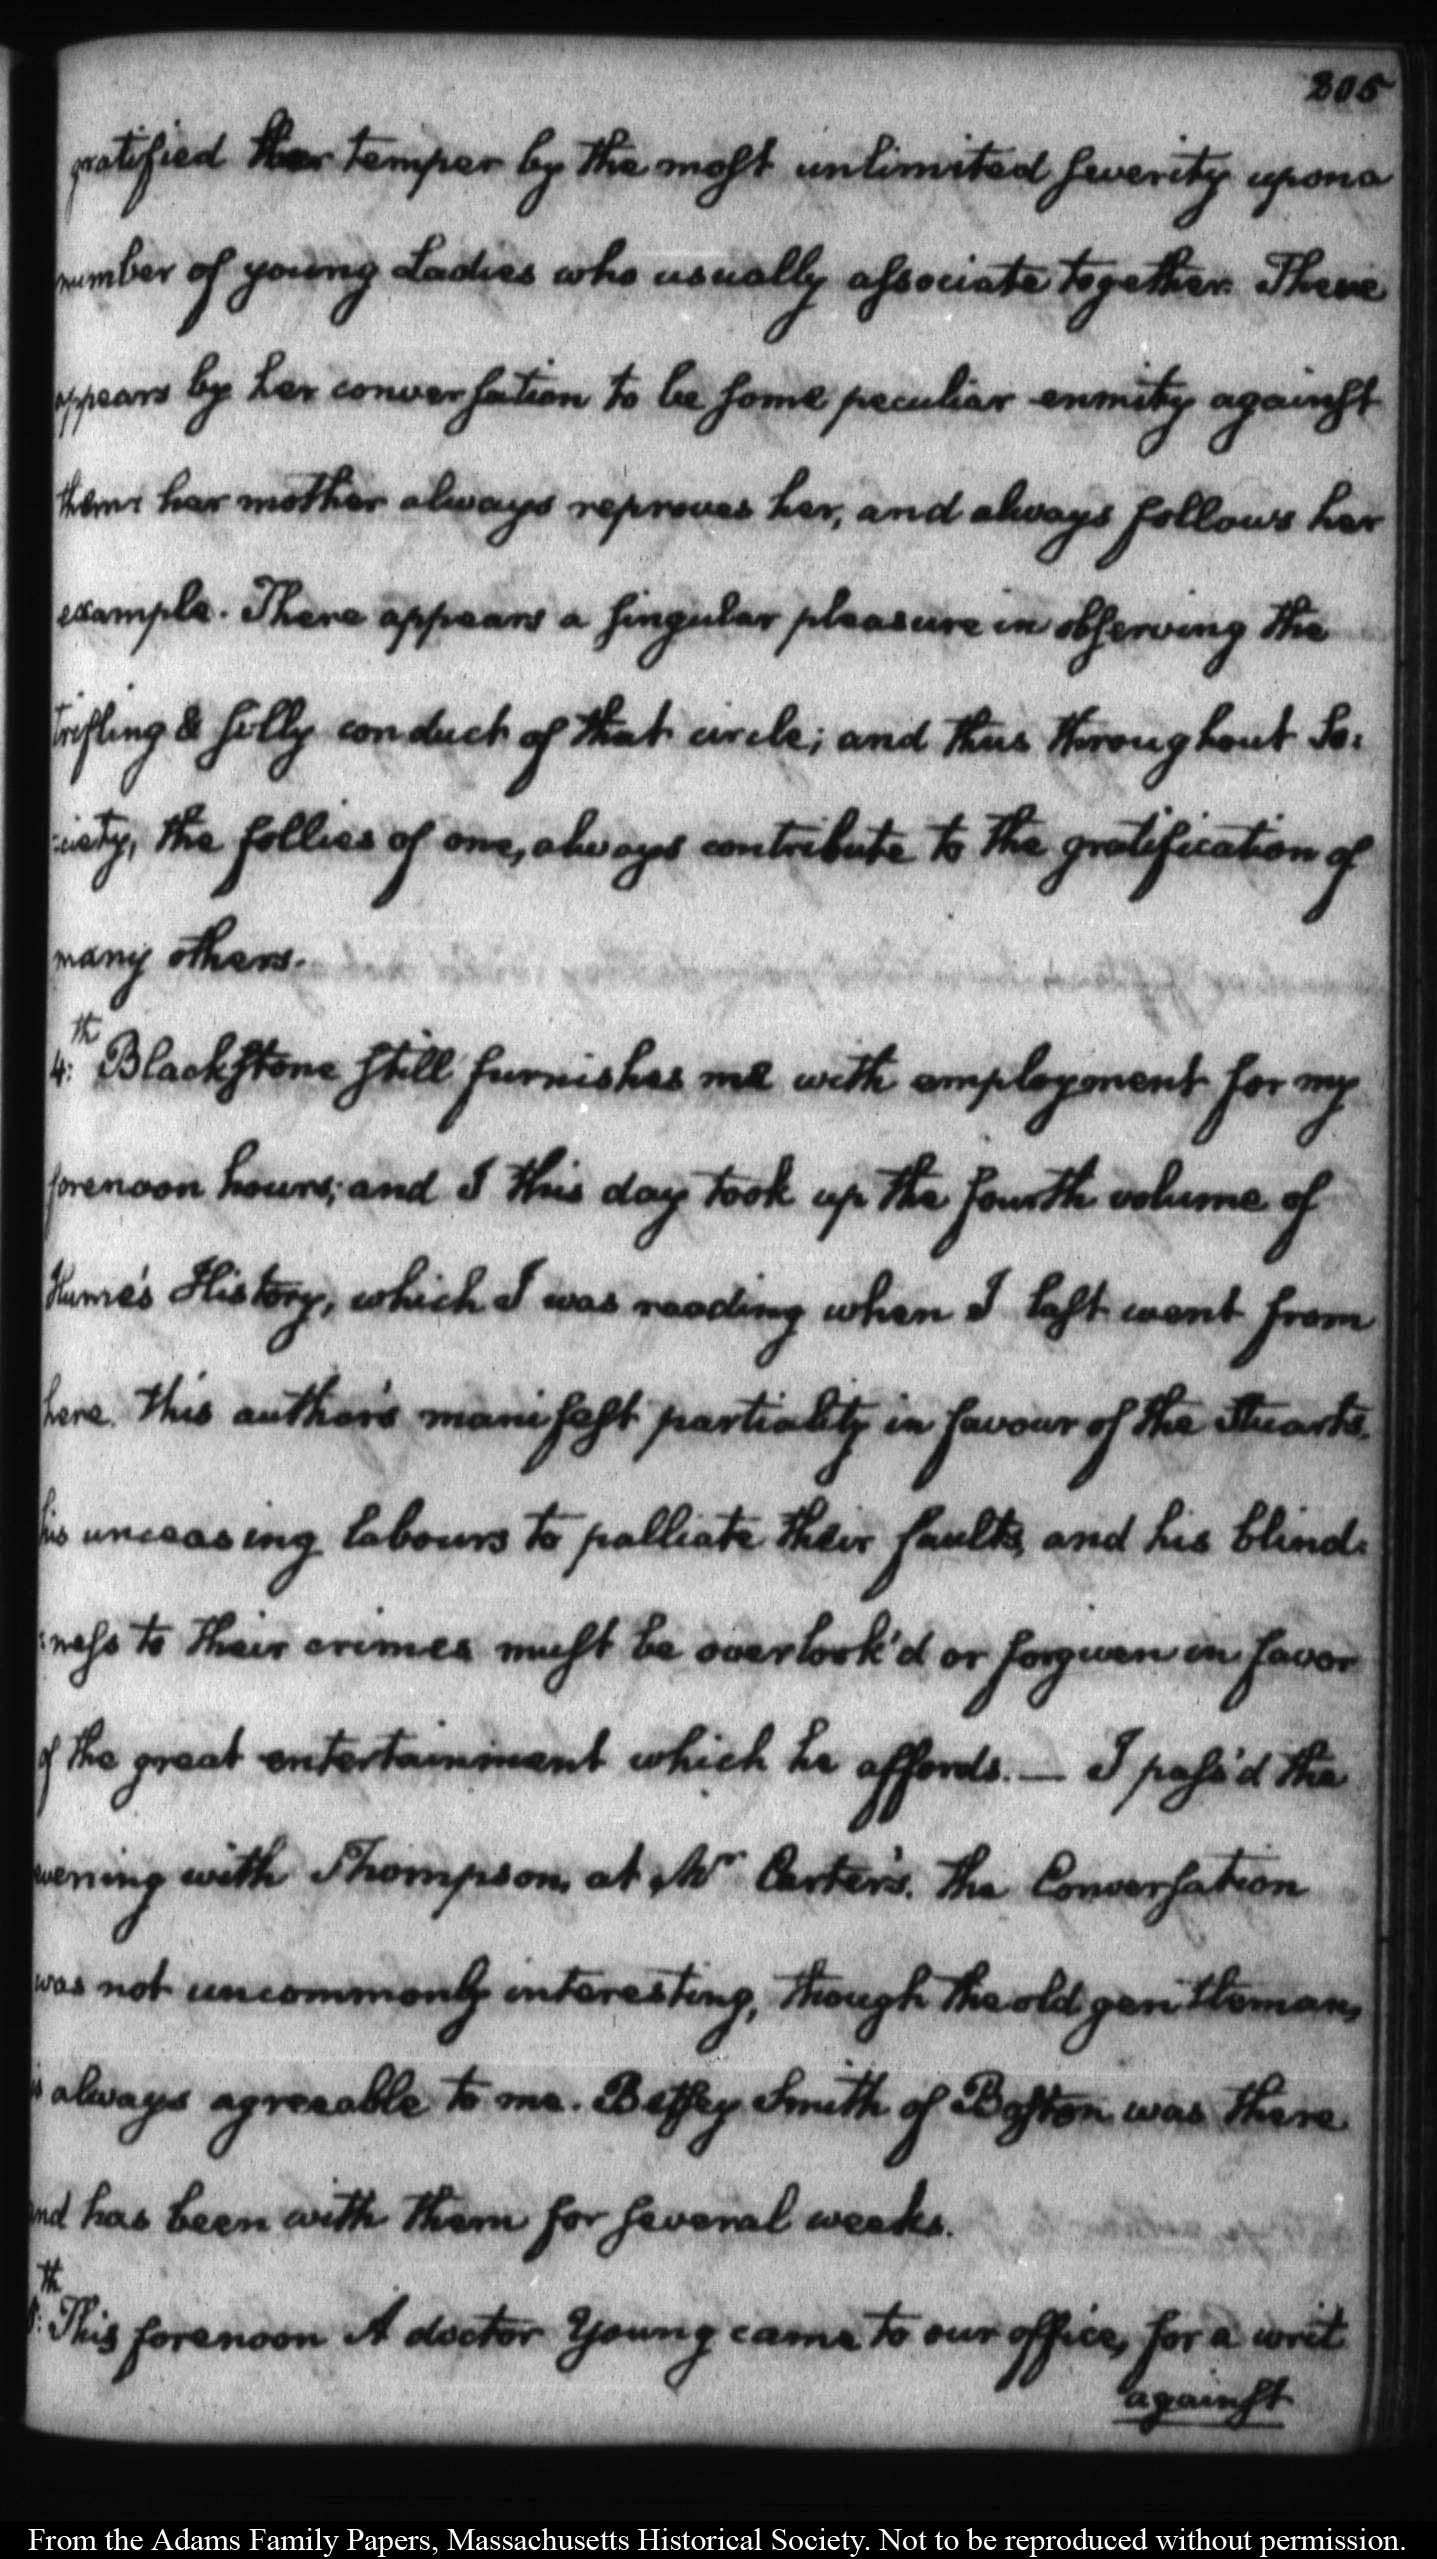 205
gratified her temper by the most unlimited severity upon a
number of young Ladies who usually associate together. There
appears by her conversation to be some peculiar enmity against
them: her mother always reproves her, and always follows her
example. There appears a singular pleasure in observing the
trifling & silly conduct of that circle; and thus throughout So:
:ciety, the follies of one, always contribute to the gratification of
many others.
4:th Blackstone still furnishes me with employment for my
forenoon hours; and I this day took up the fourth volume of
Hume's History, which I was reading when I last went from
here. This author's manifest partiality in favour of the Stuarts.
his unceasing labours to palliate their faults, and his blind:
:ness to their crimes must be overlook'd or forgiven in favor
of the great entertainment which he affords. — I pass'd the
evening with Thompson, at Mr Carter's. The Conversation
was not uncommonly interesting, though the old gentleman,
is always agreeable to me. Betsey Smith of Boston was there
and has been with them for several weeks.
5:th This forenoon A doctor Young came to our office, for a writ
against
From the Adams Family Papers, Massachusetts Historical Society. Not to be reproduced without permission.